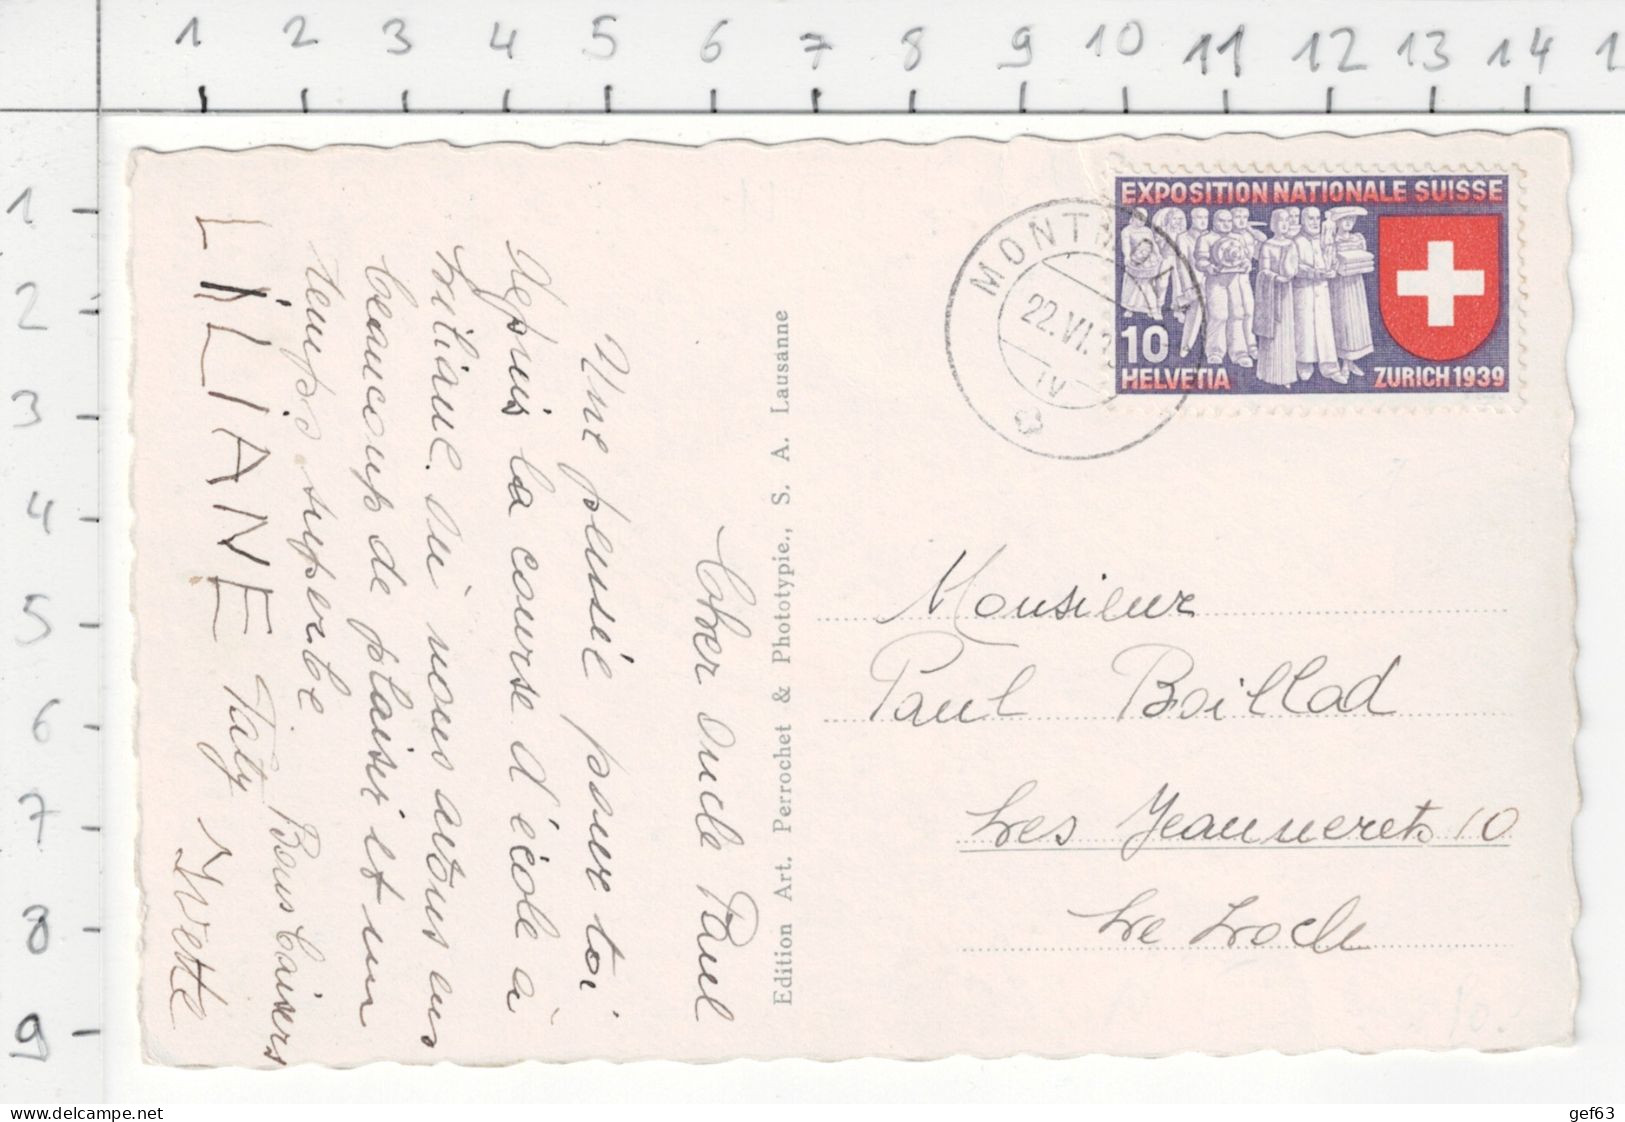 1 2 3 4 5 6 7 8 9 10 11 12 13 14 1
1
2
3
4
5
6
7
8
9
EXPOSITION NATIONALE SUISSE
10
HELVETIA
ZURICH 1939
22.VI.3
IV
Cher Oncle Paul
Une pensée pour toi
depuis la course d'école à
Liliane. Oui nous avons eus
beaucoup de plaisir et un
temps superbe.
Bons Baisers
LILIANE
Yvette
Edition Art. Perrochet & Phototypie., S. A. Lausanne
Monsieur
Paul Boillad
Les Jeannerets 10
Le Locle
10.-
gef63